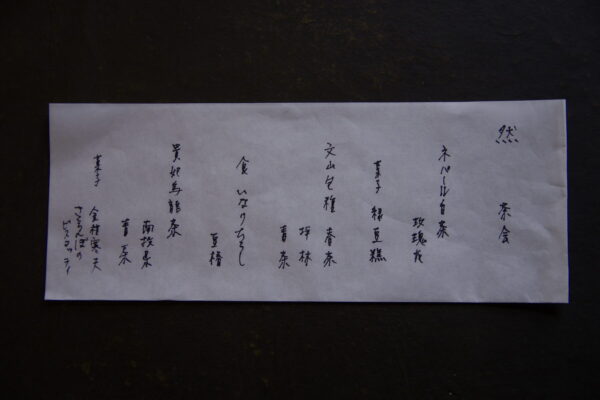 然 茶会
ネパール白茶
玫瑰花
菓子 緑豆糕
文山包種 春茶
坪林
青茶
食 いなりちらし
豆椿
貴妃烏龍茶
南投県
青茶
菓子
金柑寒天
さくらんぼの
ビスコッティ